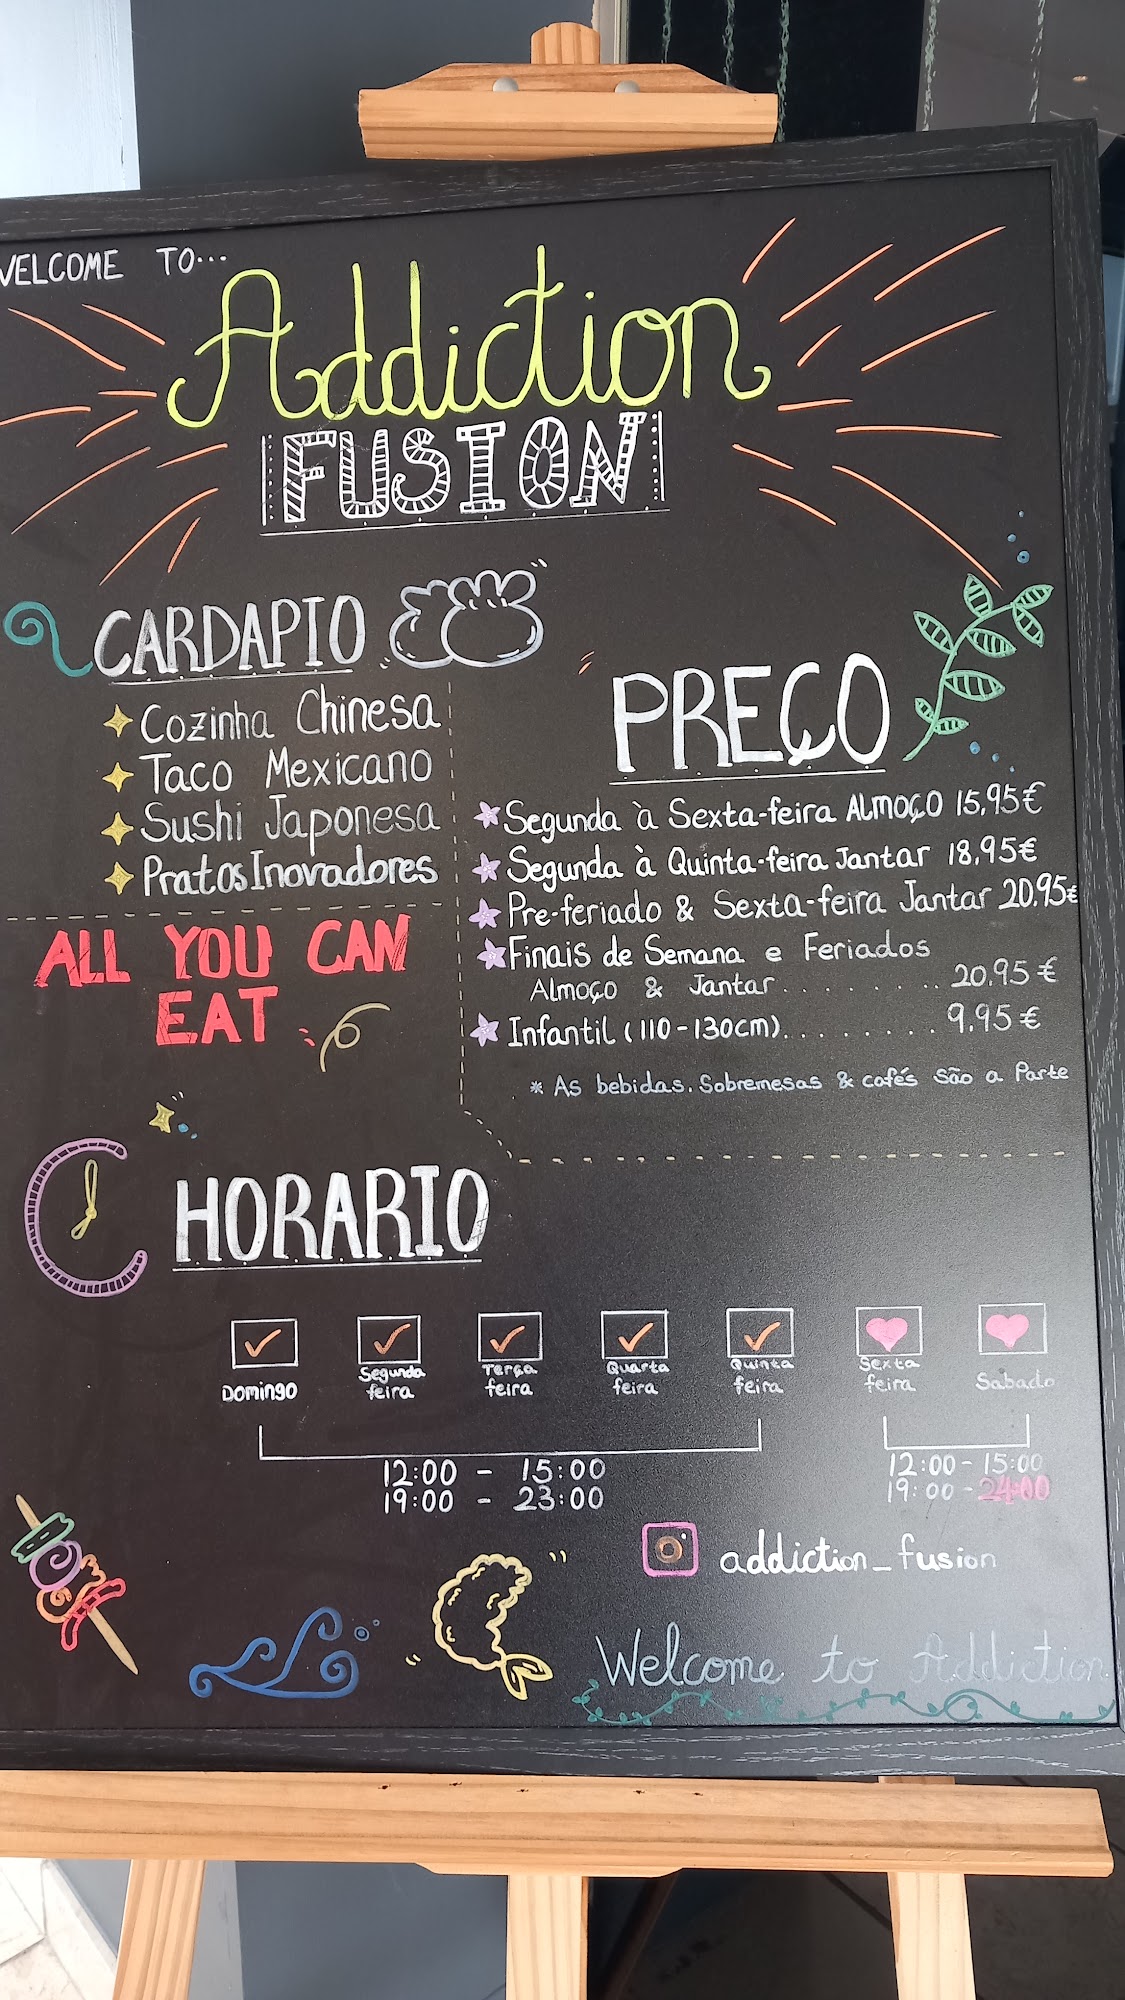 WELCOME TO...
Addiction
FUSION
CARDAPIO
Cozinha Chinesa
Taco Mexicano
Sushi Japonesa
Pratos Inovadores
ALL YOU CAN
EAT
PREÇO
Segunda à Sexta-feira ALMOÇO 15,95€
Segunda à Quinta-feira Jantar 18,95€
Pre-feriado & Sexta-feira Jantar 20.95€
Finais de Semana e Feriados
Almoço & Jantar......... 20,95€
Infantil (110-130cm)........ 9.95€
* As bebidas. Sobremesas & cafés São a Parte
HORARIO
Domingo
Segunda
feira
Terça
feira
Quarta
feira
Quinta
feira
Sexta
feira
Sabado
12:00 - 15:00
19:00 - 23:00
12:00 - 15:00
19:00 - 24:00
addiction_fusion
Welcome to Addiction